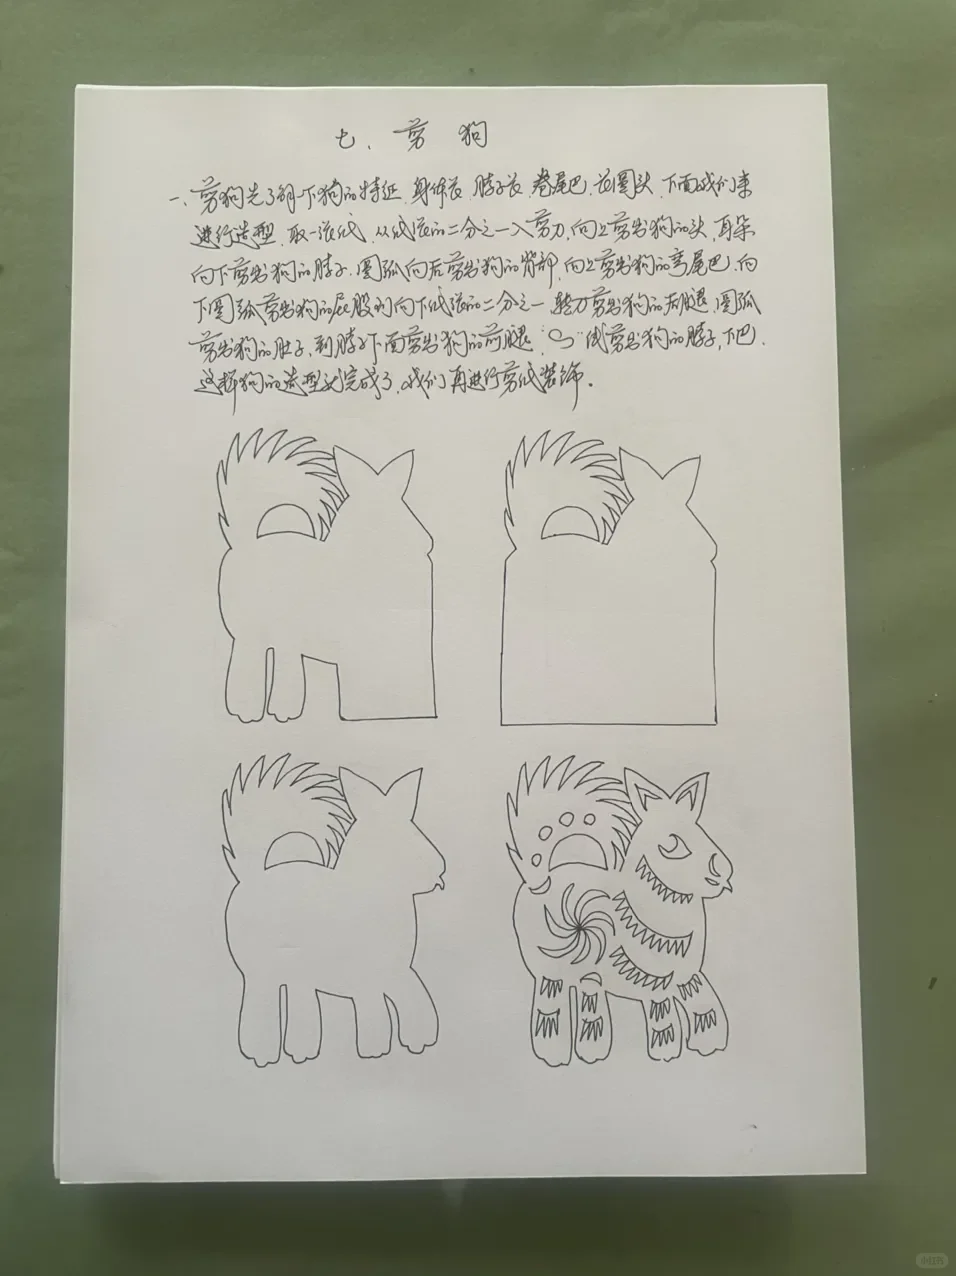 七、剪 狗
一、剪狗先了解一下狗的特征,身体长,脖子长,卷尾巴,长圆头,下面我们来
进行造型,取一张纸,从纸张的二分之一入剪刀,向上剪出狗的头,耳朵
向下剪出狗的脖子,圆弧向后剪出狗的背部,向上剪出狗的弯尾巴,向
下圆弧剪出狗的屁股到向下纸张的二分之一转刀剪出狗的后腿,圆弧
剪出狗的肚子,到脖子下面剪出狗的前腿,“”线剪出狗的脖子,下巴,
这样狗的造型就完成了,我们再进行剪纸装饰。
小红书